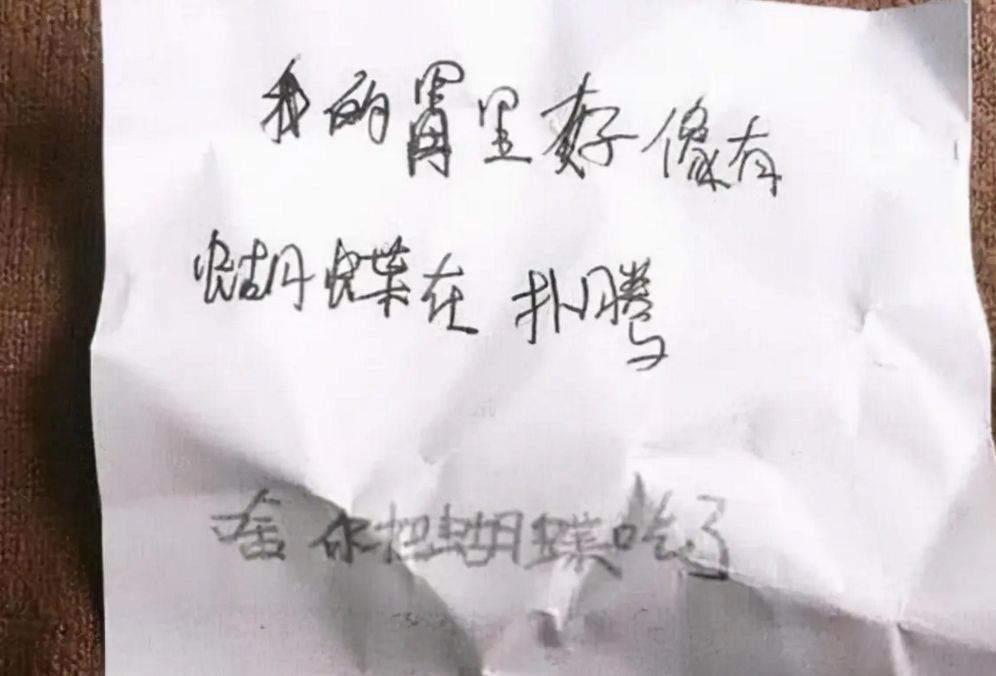 我的胃里好像有
蝴蝶在扑腾
啥 你把蝴蝶吃了